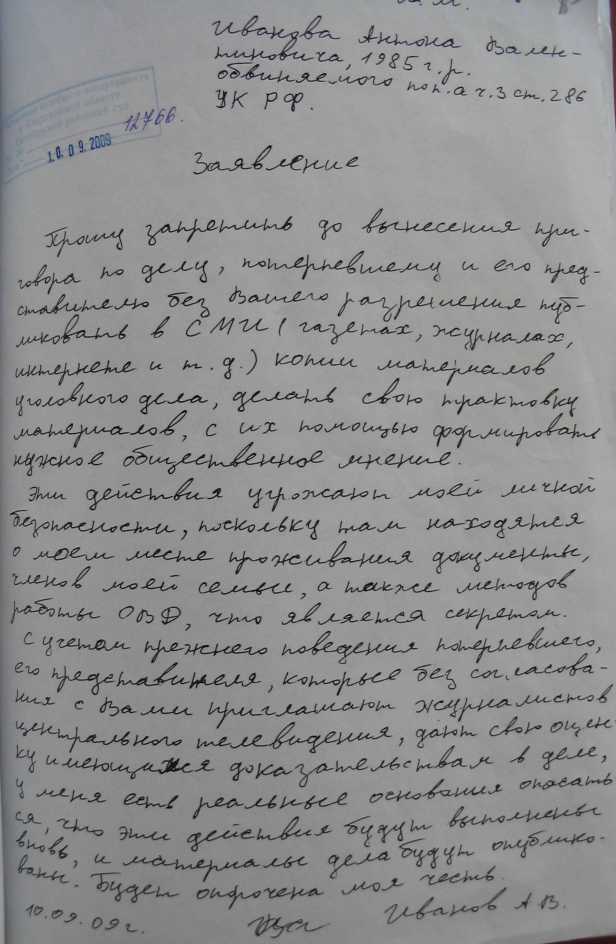 Иванова Антона Вален-
тиновича, 1985 г.р.
обвиняемого по п.а ч.3 ст.286
УК РФ.
10.09.2009
12766.
Заявление
Прошу запретить до вынесения при-
говора по делу, потерпевшему и его пред-
ставителю без Вашего разрешения пуб-
ликовать в СМИ (газетах, журналах,
интернете и т.д.) копии материалов
уголовного дела, делать свою трактовку
материалов, с их помощью формировать
нужное общественное мнение.
Эти действия угрожают моей личной
безопасности, поскольку там находятся
о моем месте проживания документы,
членов моей семьи, а также методов
работы ОВД, что является секретом.
С учетом прежнего поведения потерпевшего,
его представителя, которые без согласова-
ния с Вами приглашают журналистов
центрального телевидения, дают свою оцен-
ку имеющимся доказательствам в деле,
у меня есть реальные основания опасать
ся, что эти действия будут выполнены
вновь, и материалы дела будут опублико-
ваны. Будет опорочена моя честь.
10.09.09г.
Иванов А.В.